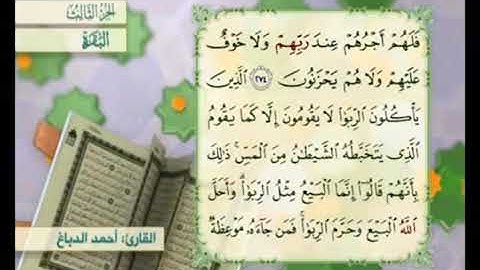 الجزء الثالث
البقرة
فَلَهُمْ أَجْرُهُمْ عِندَ رَبِّهِمْ وَلَا خَوْفٌ
عَلَيْهِمْ وَلَا هُمْ يَحْزَنُونَ ﴿٢٧٤﴾ الَّذِينَ
يَأْكُلُونَ الرِّبَوٰا۟ لَا يَقُومُونَ إِلَّا كَمَا يَقُومُ
الَّذِى يَتَخَبَّطُهُ الشَّيْطَٰنُ مِنَ الْمَسِّ ۚ ذَٰلِكَ
بِأَنَّهُمْ قَالُوٓا۟ إِنَّمَا الْبَيْعُ مِثْلُ الرِّبَوٰا۟ ۗ وَأَحَلَّ
اللَّهُ الْبَيْعَ وَحَرَّمَ الرِّبَوٰا۟ ۚ فَمَن جَآءَهُۥ مَوْعِظَةٌ
القارئ: أحمد الدباغ